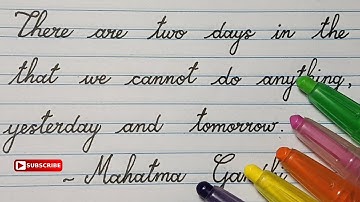 There are two days in the
that we cannot do anything,
yesterday and tomorrow.
SUBSCRIBE
~ Mahatma Gandhi